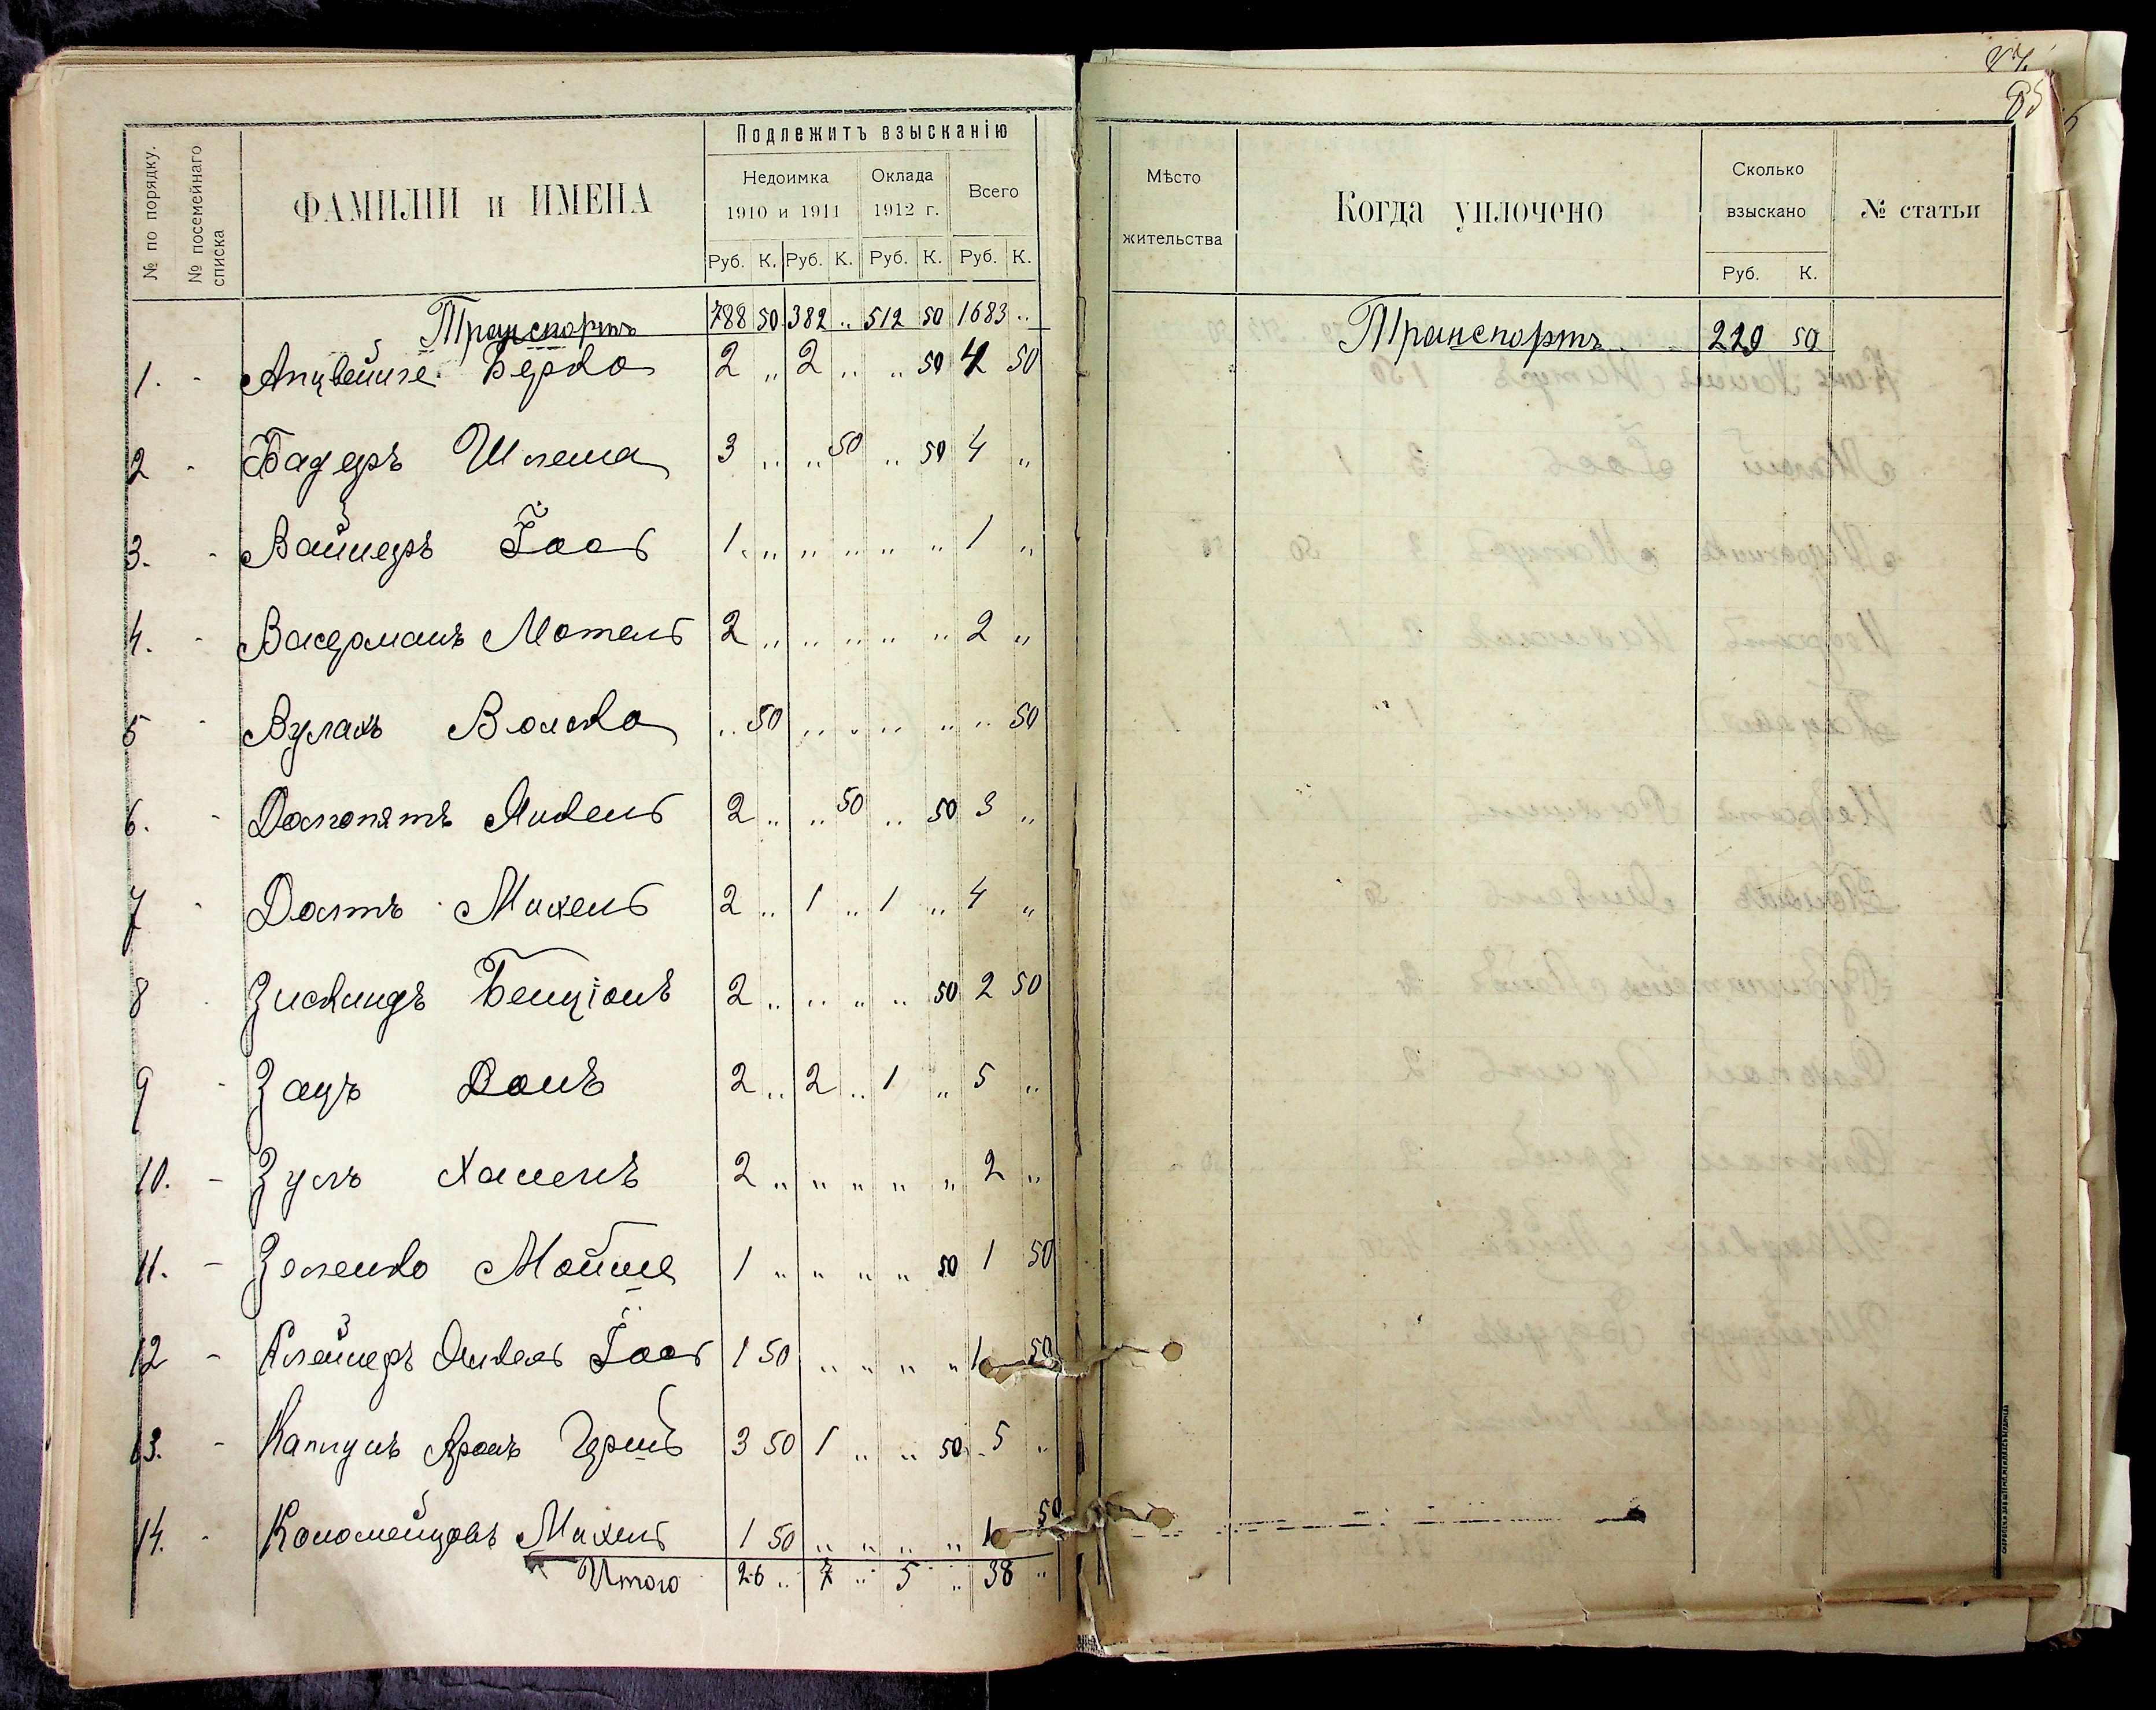 № по порядку.
№ посемейнаго списка
ФАМИЛІИ и ИМЕНА
Подлежитъ взысканію
Недоимка
1910 и 1911
Оклада
1912 г.
Всего
Руб. К. Руб. К. Руб. К. Руб. К.
Транспортъ 788 50 382 „ 512 50 1683 „
1. - Берко 2 „ 2 „ „ 50 4 50
2 - Бадеръ Шлема 3 „ „ 50 „ 50 4 „
3. - Вайнеръ Іось 1 „ „ „ „ „ 1 „
4. - Васерманъ Мотель 2 „ „ „ „ „ 2 „
5 - Вулахъ Волько „ 50 „ „ „ „ „ 50
6. - Долгопятъ Янкель 2 „ „ 50 „ 50 3 „
7 - Долтъ Михель 2 „ 1 „ 1 „ 4 „
8 - Зискиндъ Бенціонъ 2 „ „ „ „ 50 2 50
9 - Зацъ Донъ 2 „ 2 „ 1 „ 5 „
10. - Зуслъ 2 „ „ „ „ „ 2 „
11. - Зеленко Мойше 1 „ „ „ „ 50 1 50
12 - Клейнеръ Янкель Іось 1 50 „ „ „ „ 1 50
13. - Каплунъ Аронъ Гершъ 3 50 1 „ „ 50 5 „
14. - Коломейцовъ Михель 1 50 „ „ „ „ 1 50
Итого 26 „ 7 „ 5 „ 38 „
85
Мѣсто
жительства
Когда уплочено
Сколько
взыскано
Руб. К.
№ статьи
Транспортъ 220 50